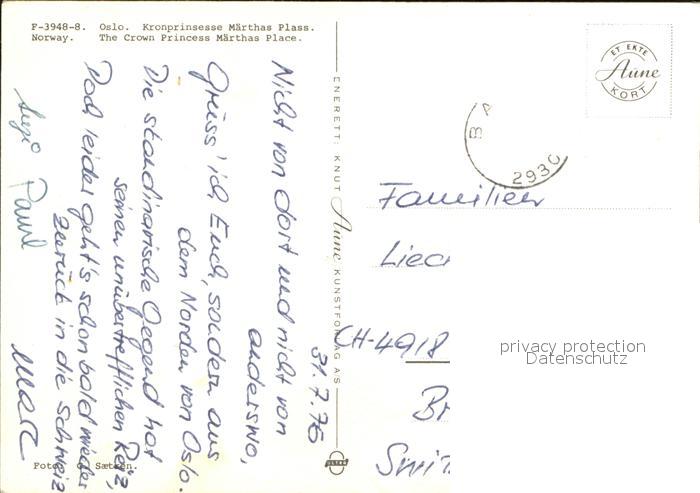 F-3948-8. Oslo. Kronprinsesse Märthas Plass.
Norway. The Crown Princess Märthas Place.
31.7.76
Nicht von dort und nicht von
anderswo,
Grüss' ich Euch, sondern aus
dem Norden von Oslo.
Die skandinavische Gegend hat
seinen unübertrefflichen Reiz,
Doch leider geht's schon bald wieder
zurück in die Schweiz
Paul
Marc
Foto: O. Sætren.
ENERETT: KNUT Aune KUNSTFORLAG A/S
ULTRA
ET EKTE
Aune
KORT
2930
Familien
Liec
CH-4918
Br
Swit
privacy protection
Datenschutz